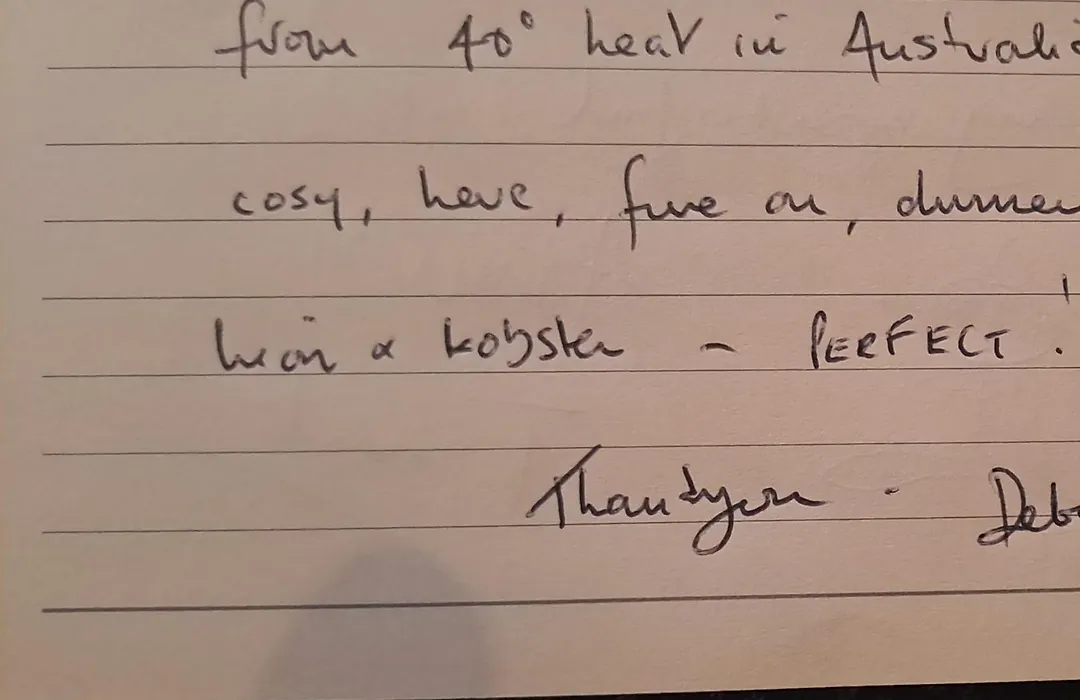 from 40° heat in Australia
cosy, here, fire on, dinner
wein & lobster - PERFECT!
Thankyou - Deb